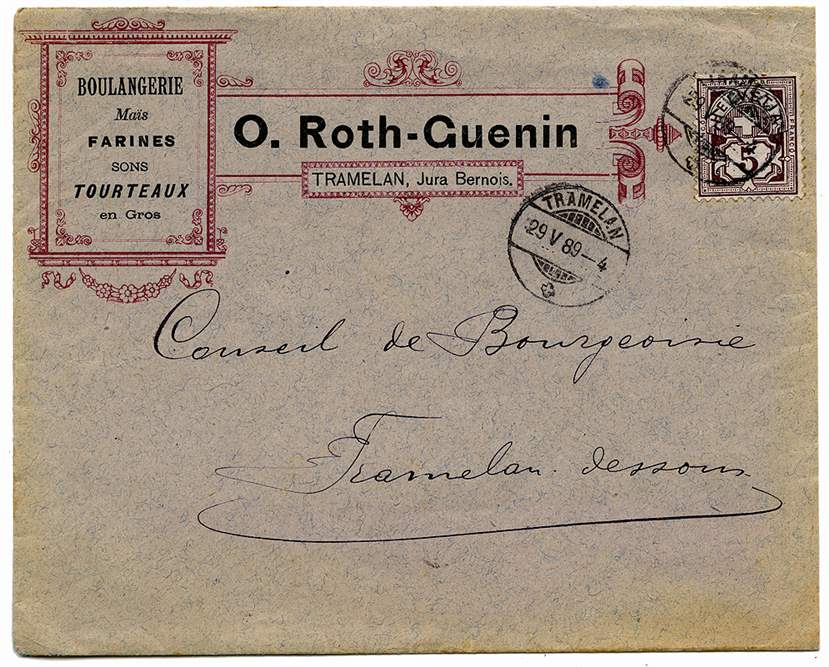 BOULANGERIE
Maïs
FARINES
SONS
TOURTEAUX
en Gros
O. Roth-Guenin
TRAMELAN, Jura Bernois.
HELVETIA
FRANCO
5
TRAMELAN
29 V 89–4
Conseil de Bourgeoisie
Tramelan. dessous